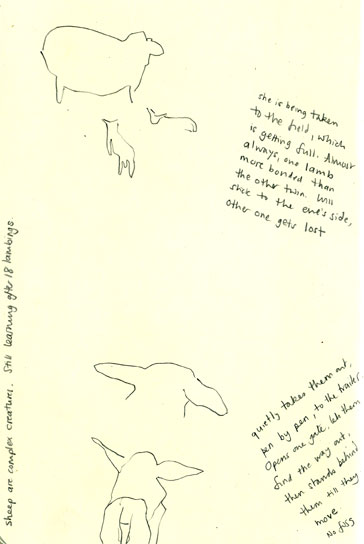 she is being taken
to the field, which
is getting full. Almost
always, one lamb
more bonded than
the other twin. Will
stick to the ewe's side,
other one gets lost
quietly takes them out,
pen by pen, to the trailer.
Opens one gate, lets them
find the way out,
then stands behind
them till they
move
No fuss
Sheep are complex creatures. Still learning after 18 lambings.